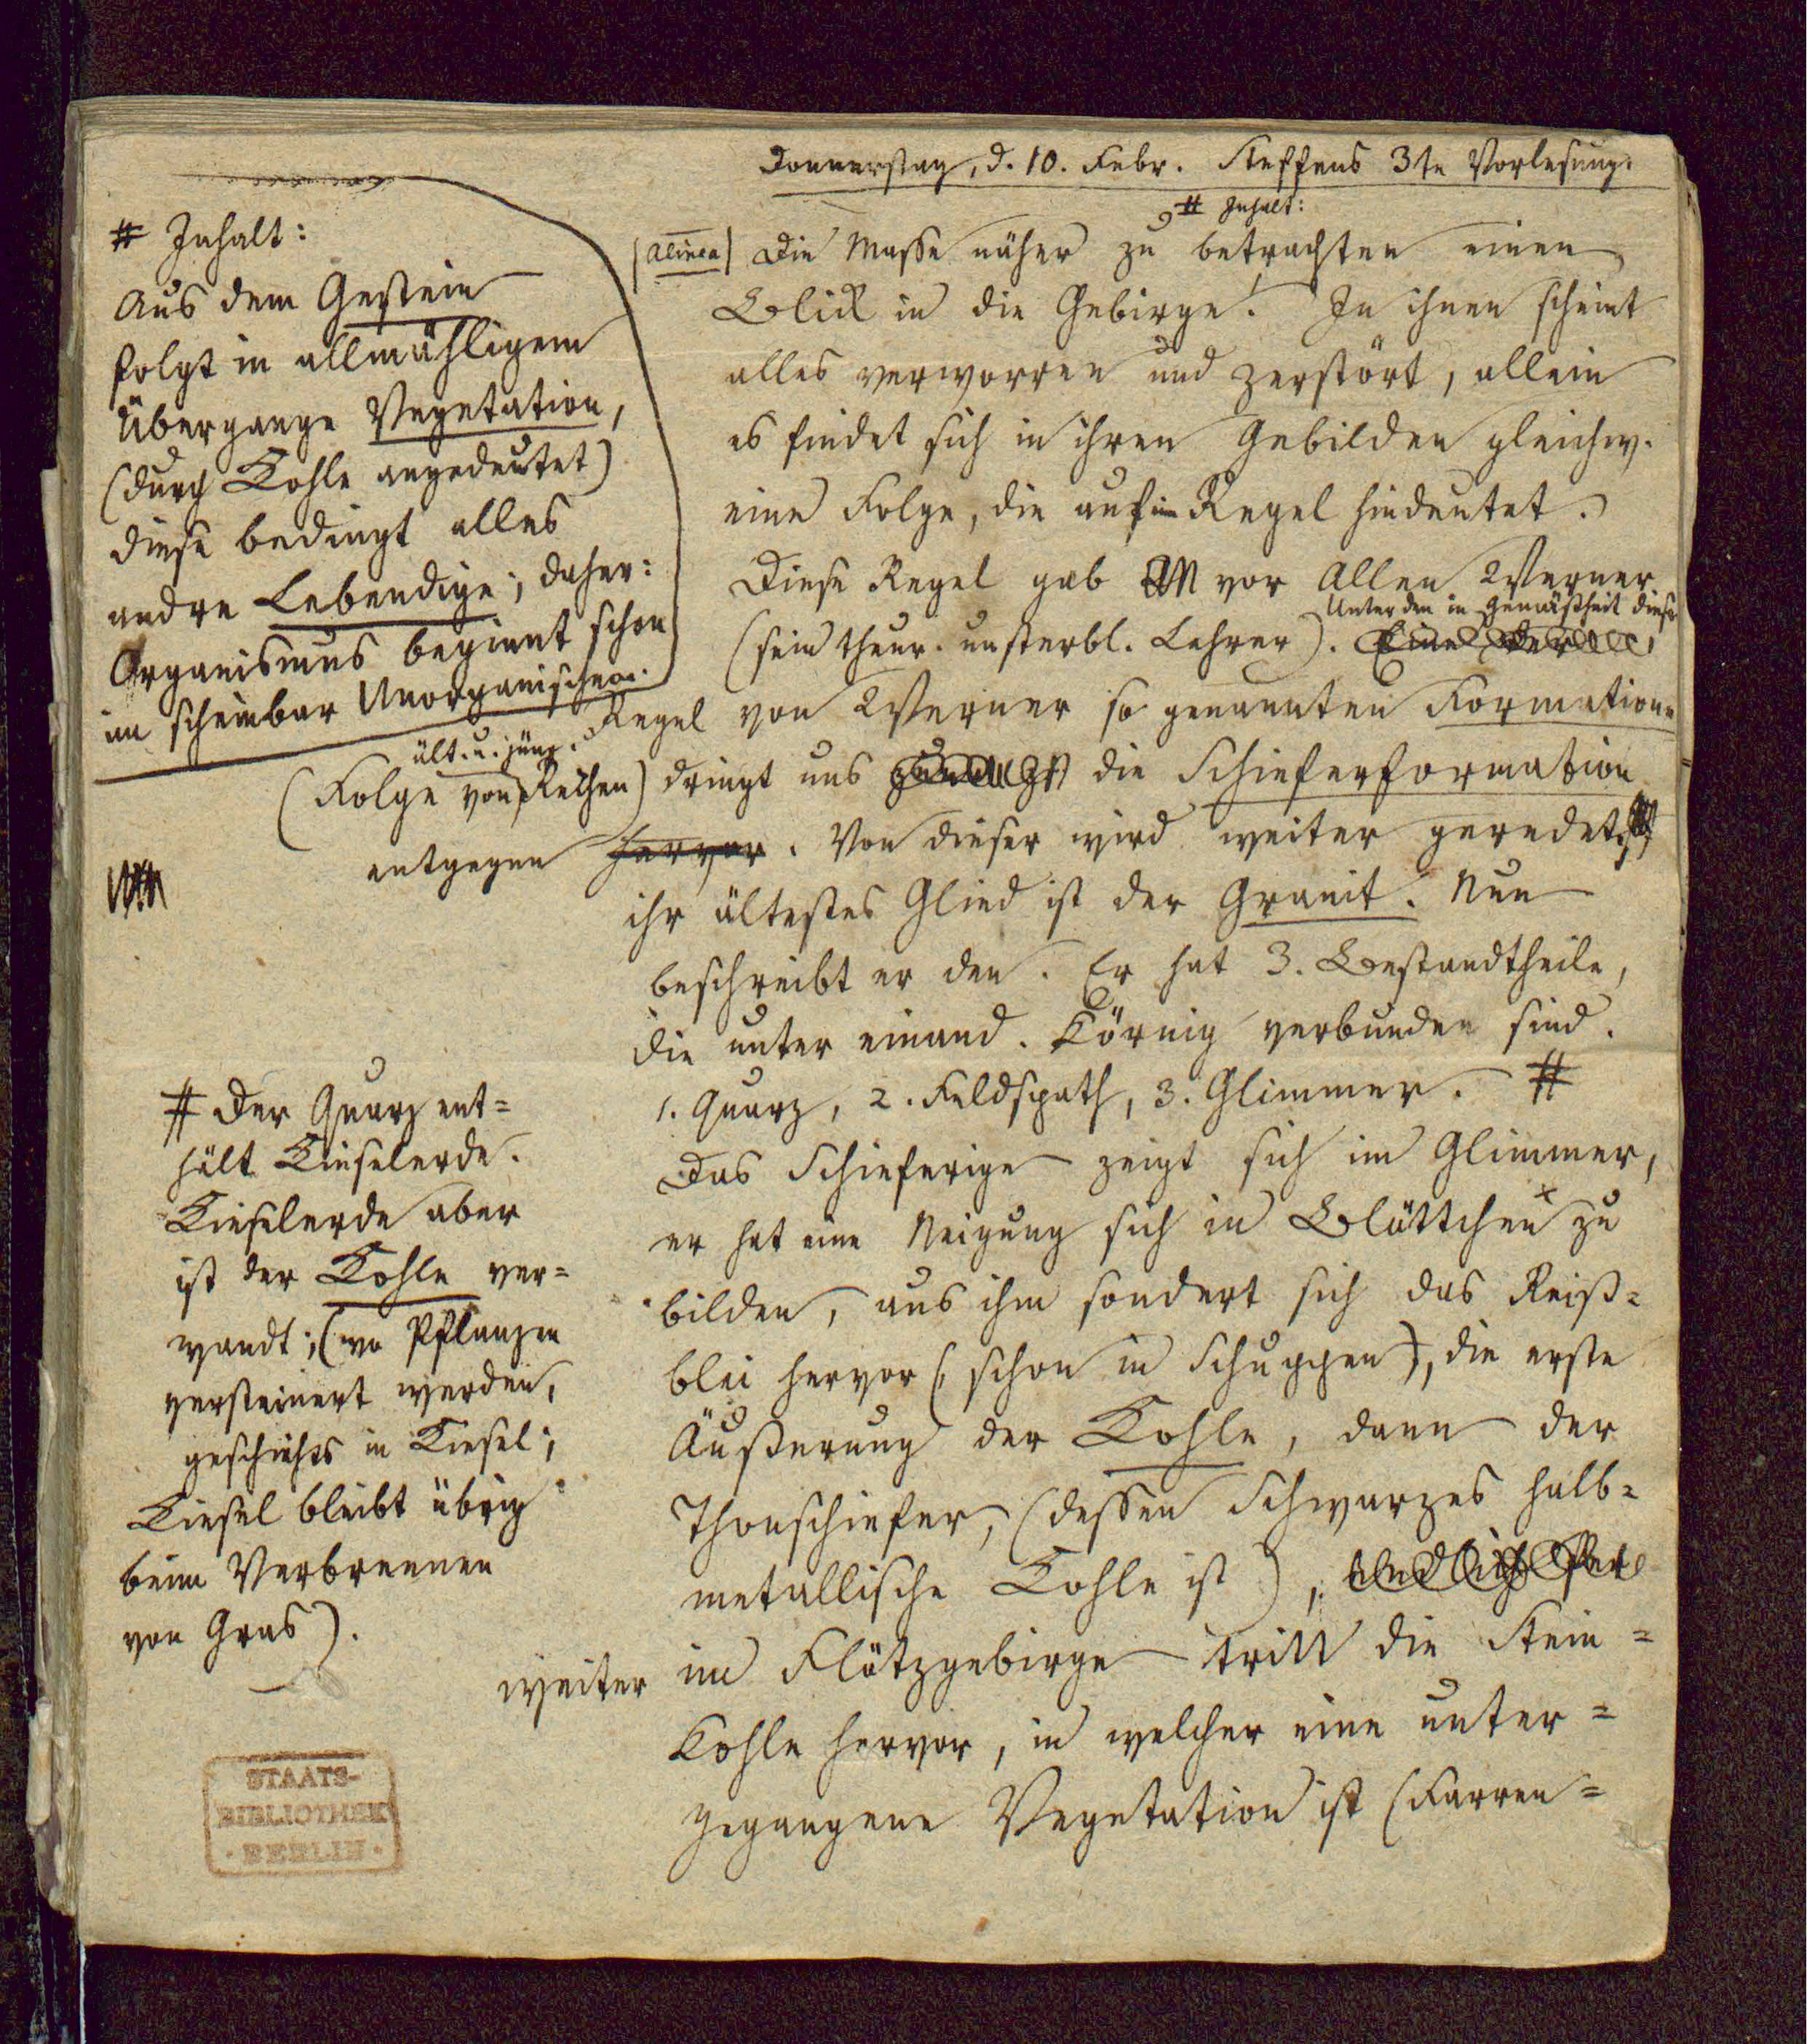 Donnerstag, d. 10. Febr. Steffens 3te Vorlesung.
# Inhalt:
# Inhalt:
Aus dem Gestein
folgt in allmähligem
Übergange Vegetation,
(durch Kohle angedeutet)
diese bedingt alles
andre Lebendige; daher:
Organismus beginnt schon
im scheinbar Unorganischen.
(Alinea) Die Masse näher zu betrachten einen
Blick in die Gebirge! In ihnen scheint
alles verworren und zerstört, allein
es findet sich in ihren Gebilden gleichw.
eine Folge, die auf eine Regel hindeutet.
Diese Regel gab vor Allen Werner
(sein theur. unsterbl. Lehrer). Eine der
Unter den in Gemäßheit dieser
Regel von Werner so genannten Formationen
ält. u. jüng.
(Folge von Reihen) dringt uns die Schieferformation
entgegen hervor. Von dieser wird weiter geredet,
ihr ältestes Glied ist der Granit. Nun
beschreibt er den. Er hat 3. Bestandtheile,
die unter einand. Körnig verbunden sind.
1. Quarz, 2. Feldspath, 3. Glimmer. #
Das Schieferige zeigt sich im Glimmer,
er hat eine Neigung sich in Blättchen x zu
bilden, aus ihm sondert sich das Reiß=
blei hervor (schon in Schuppen), die erste
Äußerung der Kohle, dann der
Thonschiefer, (dessen Schwarzes halb=
metallische Kohle ist), endlich
weiter im Flötzgebirge tritt die Stein=
Kohle hervor, in welcher eine unter=
gegangene Vegetation ist (Farren=
# Der Quarz ent=
hält Kieselerde.
Kieselerde aber
ist der Kohle ver=
wandt; (wo Pflanzen
versteinert werden,
geschiehts in Kiesel;
Kiesel bleibt übrig
beim Verbrennen
von Gras).
STAATS-
BIBLIOTHEK
· BERLIN ·